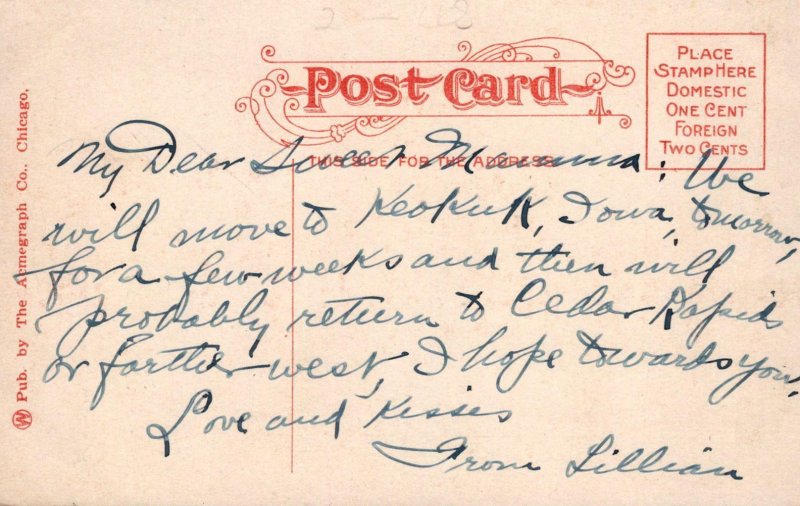 Post Card
THIS SIDE FOR THE ADDRESS
PLACE
STAMP HERE
DOMESTIC
ONE CENT
FOREIGN
TWO CENTS
Pub. by The Acmegraph Co., Chicago,
My Dear Sweet Mamma: We
will move to Keokuk, Iowa, tomorrow,
for a few weeks and then will
probably return to Cedar Rapids
or farther west, I hope towards you.
Love and Kisses
From Lillian